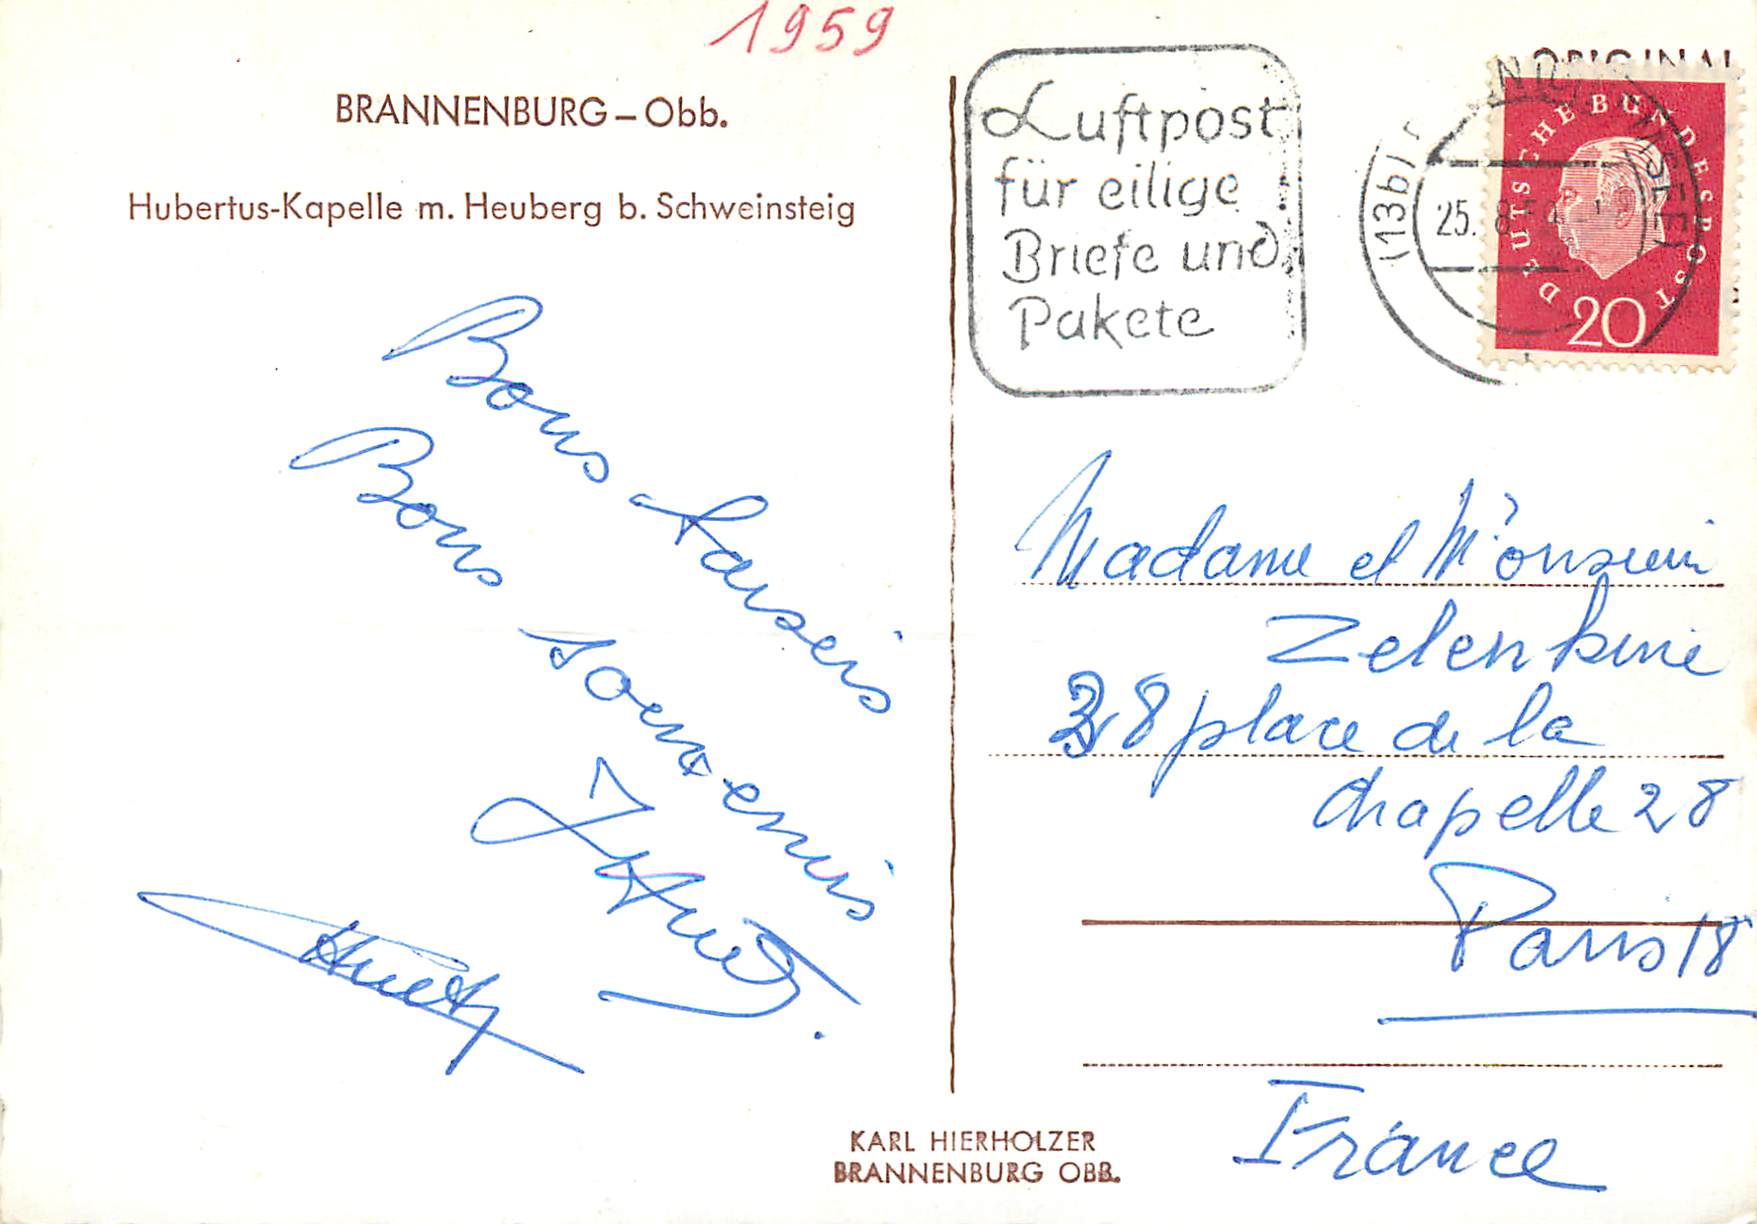 1959
BRANNENBURG – Obb.
Hubertus-Kapelle m. Heuberg b. Schweinsteig
Bons baisers
Bons souvenirs
Huet
Luftpost
für eilige
Briefe und
Pakete
ORIGINAL
(13b)
25. 8. 59
DEUTSCHE BUNDESPOST
20
Madame et Monsieur
Zelenkine
38 place de la
Chapelle 28
Paris 18
France
KARL HIERHOLZER
BRANNENBURG OBB.